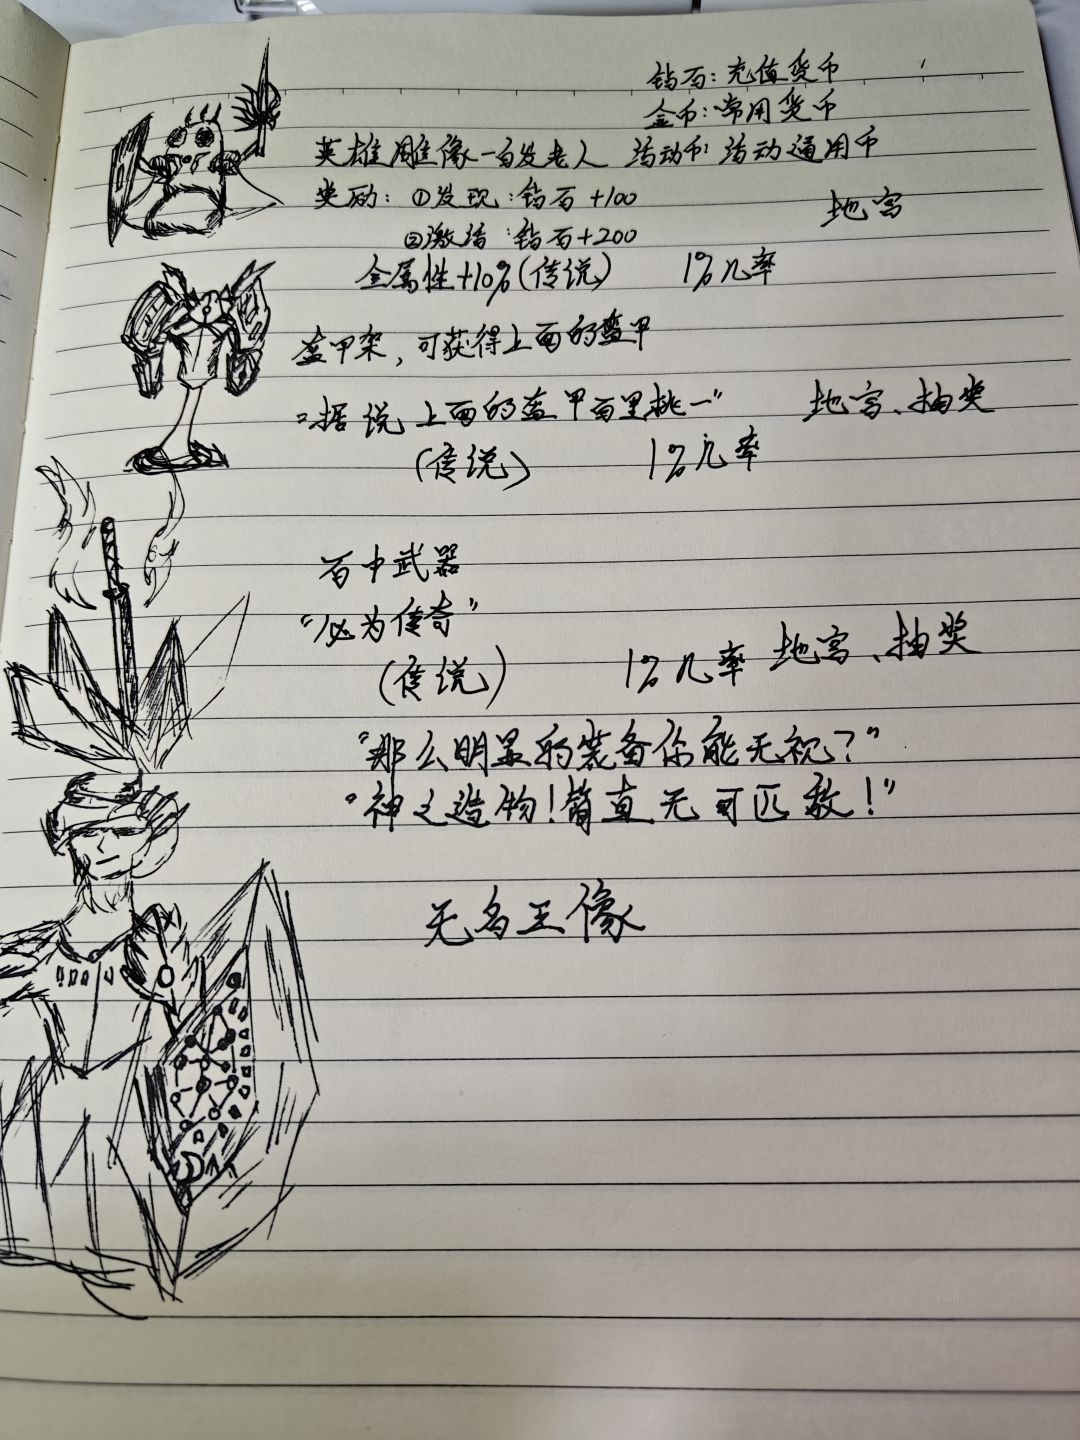 钻石:充值货币
金币:常用货币
英雄雕像-白发老人 活动币:活动通用币
奖励:①发现:钻石+100
地宫
②激活:钻石+200
全属性+10%(传说) 1%几率
盔甲架,可获得上面的盔甲
“据说上面的盔甲百里挑一” 地宫、抽奖
(传说) 1%几率
石中武器
“必为传奇”
(传说) 1%几率 地宫、抽奖
“那么明显的装备你能无视?”
“神之造物!简直无可匹敌!”
无名王像